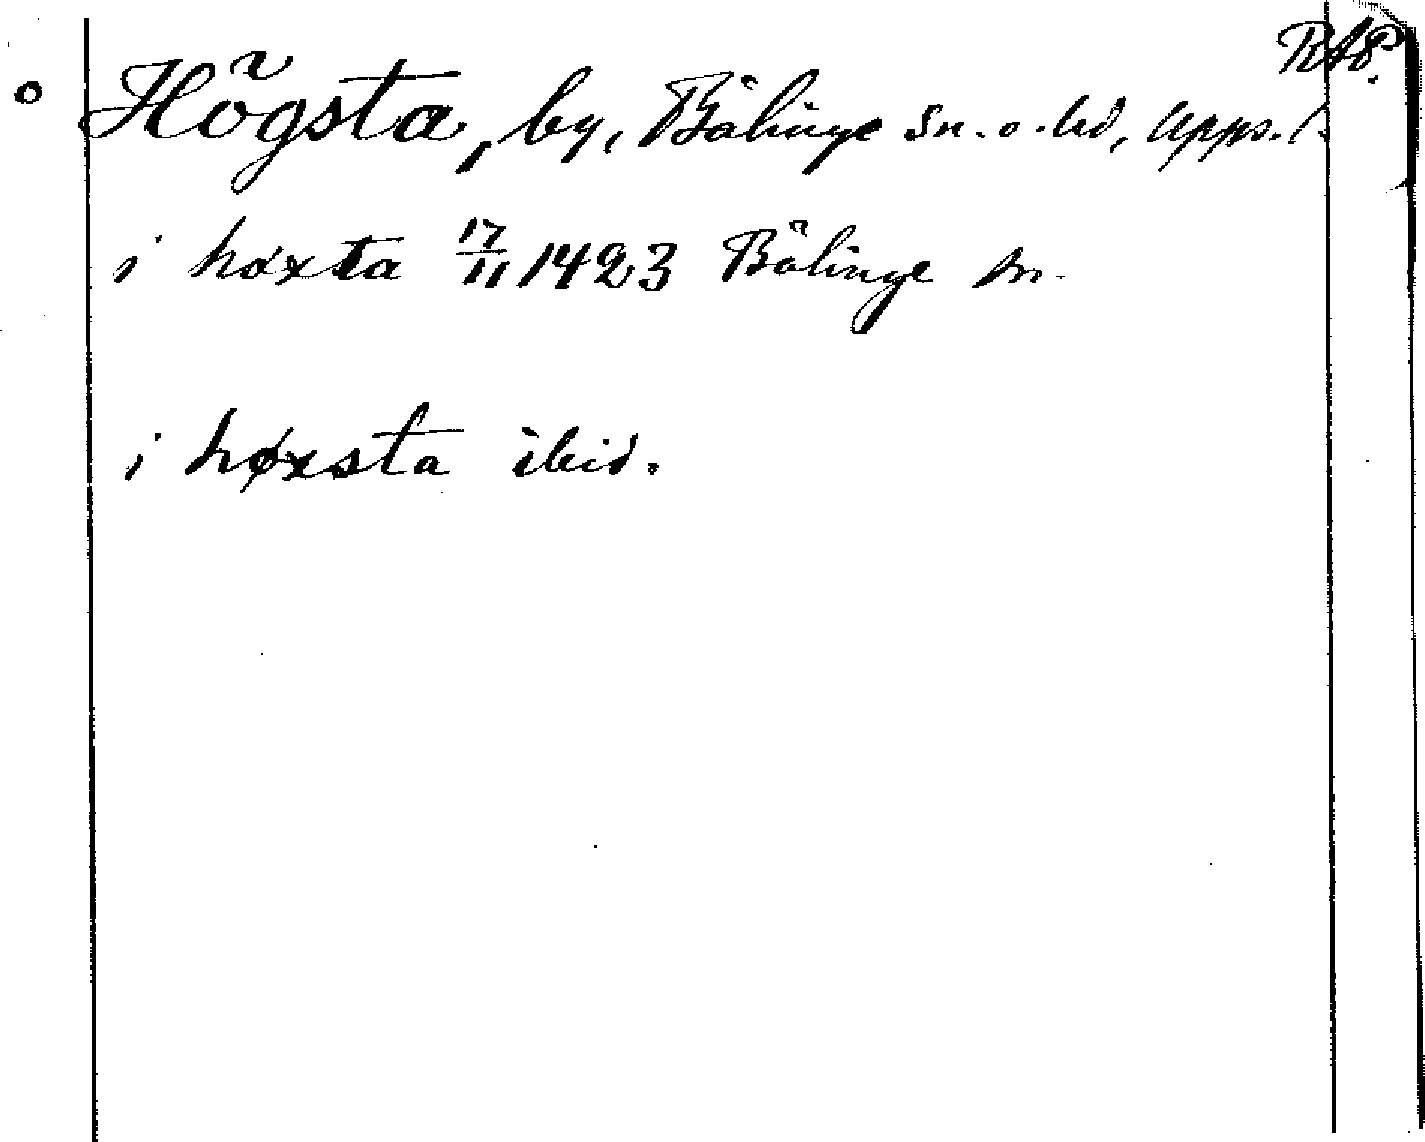 RAP.
Högsta, by, Bälinge sn. o. hd, Upps. l.
i høxta 17/11 1423 Bälinge sn.
i høxsta ibid.